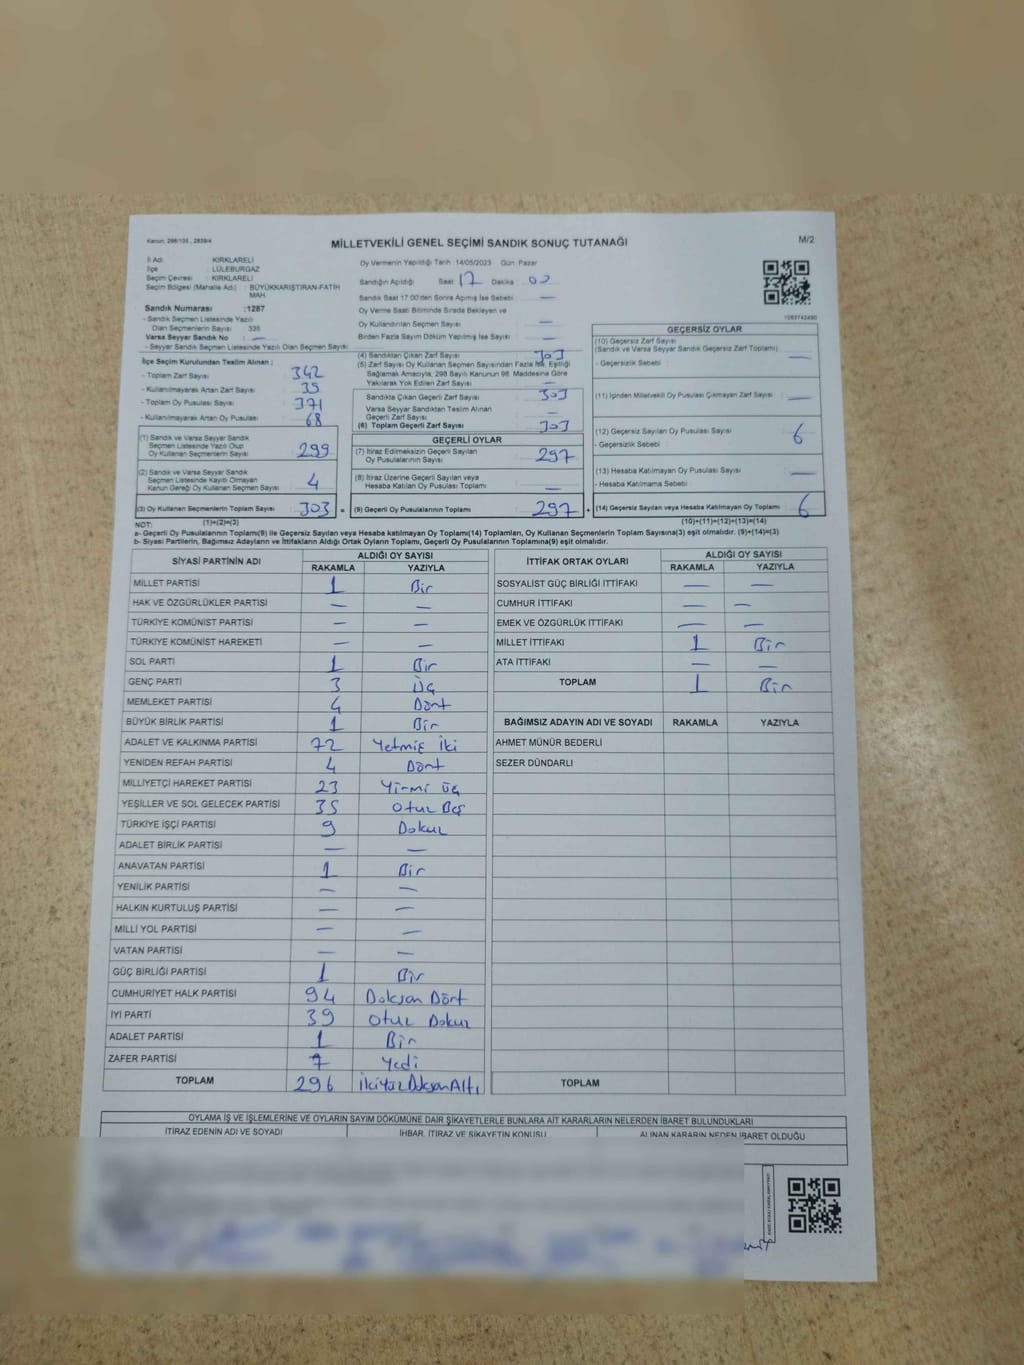 Kanun: 298/105 , 2839/4
MİLLETVEKİLİ GENEL SEÇİMİ SANDIK SONUÇ TUTANAĞI
M/2
İl Adı : KIRKLARELİ
İlçe : LÜLEBURGAZ
Seçim Çevresi : KIRKLARELİ
Seçim Bölgesi (Mahalle Adı) : BÜYÜKKARIŞTIRAN-FATİH MAH.
Sandık Numarası :1287
- Sandık Seçmen Listesinde Yazılı
Olan Seçmenlerin Sayısı : 335
Varsa Seyyar Sandık No : —
- Seyyar Sandık Seçmen Listesinde Yazılı Olan Seçmen Sayısı:
Oy Vermenin Yapıldığı Tarih :14/05/2023 Gün: Pazar
Sandığın Açıldığı Saat 17 Dakika 00
Sandık Saat 17:00'den Sonra Açılmış İse Sebebi : —
Oy Verme Saati Bitiminde Sırada Bekleyen ve
Oy Kullandırılan Seçmen Sayısı : —
Birden Fazla Sayım Döküm Yapılmış İse Sayısı : —
1063742490
İlçe Seçim Kurulundan Teslim Alınan ;
- Toplam Zarf Sayısı : 342
- Kullanılmayarak Artan Zarf Sayısı : 39
- Toplam Oy Pusulası Sayısı : 371
- Kullanılmayarak Artan Oy Pusulası : 68
(1) Sandık ve Varsa Seyyar Sandık
Seçmen Listesinde Yazılı Olup
Oy Kullanan Seçmenlerin Sayısı : 299
(2) Sandık ve Varsa Seyyar Sandık
Seçmen Listesinde Kayıtlı Olmayan
Kanun Gereği Oy Kullanan Seçmen Sayısı : 4
(3) Oy Kullanan Seçmenlerin Toplam Sayısı : 303 =
(1)+(2)=(3)
(4) Sandıktan Çıkan Zarf Sayısı : 303
(5) Zarf Sayısı Oy Kullanan Seçmen Sayısından Fazla İse, Eşitliği
Sağlamak Amacıyla; 298 Sayılı Kanunun 98. Maddesine Göre
Yakılarak Yok Edilen Zarf Sayısı : —
Sandıkta Çıkan Geçerli Zarf Sayısı : 303
Varsa Seyyar Sandıktan Teslim Alınan
Geçerli Zarf Sayısı : —
(6) Toplam Geçerli Zarf Sayısı : 303
GEÇERLİ OYLAR
(7) İtiraz Edilmeksizin Geçerli Sayılan
Oy Pusulalarının Sayısı : 297
(8) İtiraz Üzerine Geçerli Sayılan veya
Hesaba Katılan Oy Pusulası Toplamı : —
(9) Geçerli Oy Pusulalarının Toplamı : 297 +
GEÇERSİZ OYLAR
(10) Geçersiz Zarf Sayısı
(Sandık ve Varsa Seyyar Sandık Geçersiz Zarf Toplamı) : —
- Geçersizlik Sebebi :
(11) İçinden Milletvekili Oy Pusulası Çıkmayan Zarf Sayısı : —
(12) Geçersiz Sayılan Oy Pusulası Sayısı : 6
- Geçersizlik Sebebi :
(13) Hesaba Katılmayan Oy Pusulası Sayısı : —
- Hesaba Katılmama Sebebi :
(14) Geçersiz Sayılan veya Hesaba Katılmayan Oy Toplamı : 6
(10)+(11)+(12)+(13)=(14)
NOT:
a- Geçerli Oy Pusulalarının Toplamı(9) ile Geçersiz Sayılan veya Hesaba Katılmayan Oy Toplamı(14) Toplamları, Oy Kullanan Seçmenlerin Toplam Sayısına(3) eşit olmalıdır. (9)+(14)=(3)
b- Siyasi Partilerin, Bağımsız Adayların ve İttifakların Aldığı Ortak Oyların Toplamı, Geçerli Oy Pusulalarının Toplamına(9) eşit olmalıdır.
SİYASİ PARTİNİN ADI ALDIĞI OY SAYISI
RAKAMLA YAZIYLA
MİLLET PARTİSİ 1 Bir
HAK VE ÖZGÜRLÜKLER PARTİSİ — —
TÜRKİYE KOMÜNİST PARTİSİ — —
TÜRKİYE KOMÜNİST HAREKETİ — —
SOL PARTİ 1 Bir
GENÇ PARTİ 3 Üç
MEMLEKET PARTİSİ 4 Dört
BÜYÜK BİRLİK PARTİSİ 1 Bir
ADALET VE KALKINMA PARTİSİ 72 Yetmiş İki
YENİDEN REFAH PARTİSİ 4 Dört
MİLLİYETÇİ HAREKET PARTİSİ 23 Yirmi üç
YEŞİLLER VE SOL GELECEK PARTİSİ 35 Otuz Beş
TÜRKİYE İŞÇİ PARTİSİ 9 Dokuz
ADALET BİRLİK PARTİSİ — —
ANAVATAN PARTİSİ 1 Bir
YENİLİK PARTİSİ — —
HALKIN KURTULUŞ PARTİSİ — —
MİLLİ YOL PARTİSİ — —
VATAN PARTİSİ — —
GÜÇ BİRLİĞİ PARTİSİ 1 Bir
CUMHURİYET HALK PARTİSİ 94 Doksan Dört
İYİ PARTİ 39 Otuz Dokuz
ADALET PARTİSİ 1 Bir
ZAFER PARTİSİ 7 Yedi
TOPLAM 296 İkiYüzDoksanAltı
İTTİFAK ORTAK OYLARI ALDIĞI OY SAYISI
RAKAMLA YAZIYLA
SOSYALİST GÜÇ BİRLİĞİ İTTİFAKI — —
CUMHUR İTTİFAKI — —
EMEK VE ÖZGÜRLÜK İTTİFAKI — —
MİLLET İTTİFAKI 1 Bir
ATA İTTİFAKI — —
TOPLAM 1 Bir
BAĞIMSIZ ADAYIN ADI VE SOYADI RAKAMLA YAZIYLA
AHMET MÜNÜR BEDERLİ
SEZER DÜNDARLI
TOPLAM
OYLAMA İŞ VE İŞLEMLERİNE VE OYLARIN SAYIM DÖKÜMÜNE DAİR ŞİKAYETLERLE BUNLARA AİT KARARLARIN NELERDEN İBARET BULUNDUKLARI
İTİRAZ EDENİN ADI VE SOYADI İHBAR, İTİRAZ VE ŞİKAYETİN KONUSU ALINAN KARARIN NEDEN İBARET OLDUĞU